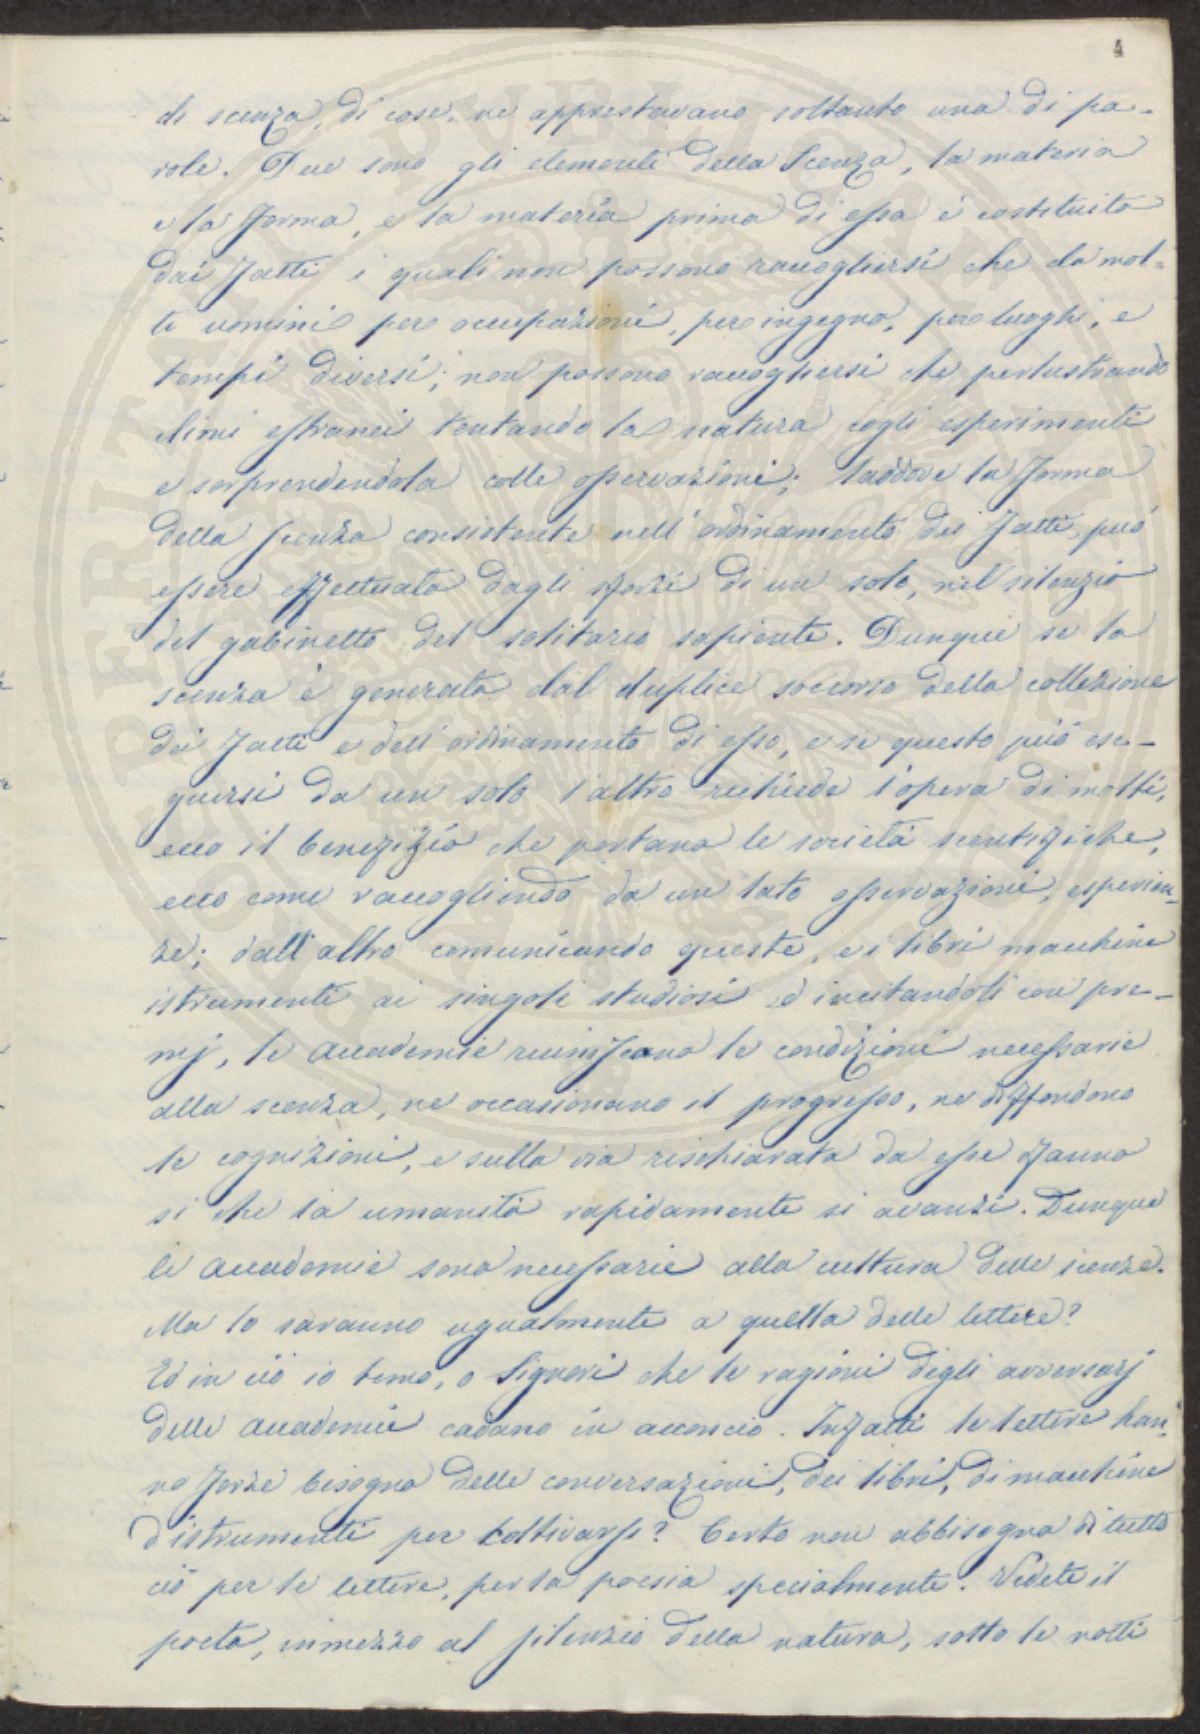 4
di scenza, di cose, ne apprestavano soltanto una di pa-
role. Due sono gli elementi della Scenza, la materia
e la forma, e la materia prima di essa è costituita
dai fatti i quali non possono raccogliersi che da mol-
ti uomini per occupazioni, per ingegno, per luoghi, e
tempi diversi; non possono raccogliersi che perlustrando
climi estranei tentando la natura cogli esperimenti
e sorprendendola colle osservazioni; laddove la forma
della scenza consistente nell'ordinamento dei fatti, può
essere effettuata dagli sforzi di un solo, nel silenzio
del gabinetto del solitario sapiente. Dunque se la
scenza è generata dal duplice soccorso della collezione
dei fatti e dell'ordinamento di esso, e se questo può ese-
guirsi da un solo l'altro richiede l'opera di molti,
ecco il benefizio che portano le società scentifiche,
ecco come raccogliendo da un lato osservazioni, esperien-
ze; dall'altro comunicando queste, e i libri macchine
istrumenti ai singoli studiosi ed incitandoli con pre-
mj, le accademie riuniscono le condizioni necessarie
alla scenza, ne occasionano il progresso, ne diffondono
le cognizioni, e sulla via rischiarata da esse fanno
si che la umanità rapidamente si avanzi. Dunque
le accademie sono necessarie alla cultura delle scenze.
Ma lo saranno ugualmente a quella delle lettere?
Ed in ciò io temo, o Signori che le ragioni degli avversarj
delle accademie cadano in acconcio. Infatti le lettere han-
no forse bisogno delle conversazioni, dei libri, di macchine
d'istrumenti per coltivarsi? Certo non abbisogna di tutto
ciò per le lettere, per la poesia specialmente. Vedete il
poeta, in mezzo al silenzio della natura, sotto le notti
PERITA PVBLICAE